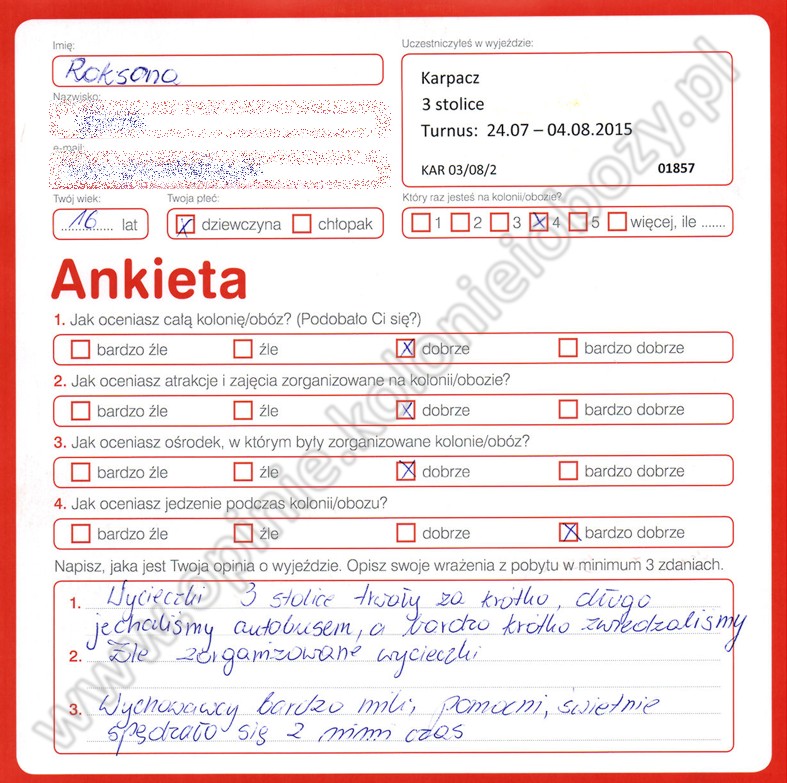 Imię:
Roksana
Nazwisko:
e-mail:
Uczestniczyłeś w wyjeździe:
Karpacz
3 stolice
Turnus: 24.07 – 04.08.2015
KAR 03/08/2 01857
Twój wiek:
16 lat
Twoja płeć:
dziewczyna chłopak
Który raz jesteś na kolonii/obozie?
1 2 3 4 5 więcej, ile .......
Ankieta
1. Jak oceniasz całą kolonię/obóz? (Podobało Ci się?)
bardzo źle źle dobrze bardzo dobrze
2. Jak oceniasz atrakcje i zajęcia zorganizowane na kolonii/obozie?
bardzo źle źle dobrze bardzo dobrze
3. Jak oceniasz ośrodek, w którym były zorganizowane kolonie/obóz?
bardzo źle źle dobrze bardzo dobrze
4. Jak oceniasz jedzenie podczas kolonii/obozu?
bardzo źle źle dobrze bardzo dobrze
Napisz, jaka jest Twoja opinia o wyjeździe. Opisz swoje wrażenia z pobytu w minimum 3 zdaniach.
1. Wycieczki 3 stolice trwały za krótko, długo
jechaliśmy autobusem, a bardzo krótko zwiedzaliśmy
2. Źle zorganizowane wycieczki
3. Wychowawcy bardzo mili, pomocni, świetnie
spędzało się z nimi czas
www.opinie.kolonieiobozy.pl